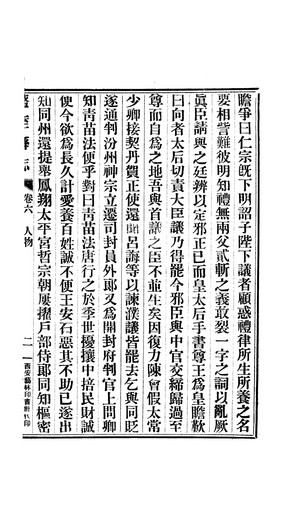 瞻爭曰仁宗旣下明詔子陛下議者顧惑禮律所生所養之名
要相訾難彼明知禮無兩父貳斬之義敢裂一字之詞以亂厥
眞臣請與之廷辨以定邪正已而皇太后手書尊王爲皇瞻歎
曰向者太后切責大臣議乃得罷今邪臣與中官交締歸過至
尊而自爲之地吾與首議之臣不並生矣因復力陳會假太常
少卿接契丹賀正使還聞呂誨等以諫濮議皆罷去乞與同貶
遂通判汾州神宗立遷司封員外郎又爲開封府判官上問卿
知青苗法便乎對曰青苗法唐行之於季世擾攘中掊民財誠
便今欲爲長久計愛養百姓誠不便王安石惡其不助已遂出
知同州還提舉鳳翔太平宮哲宗朝屢擢戶部侍郎同知樞密
卷六 人物
二
西安藝林印書社代印